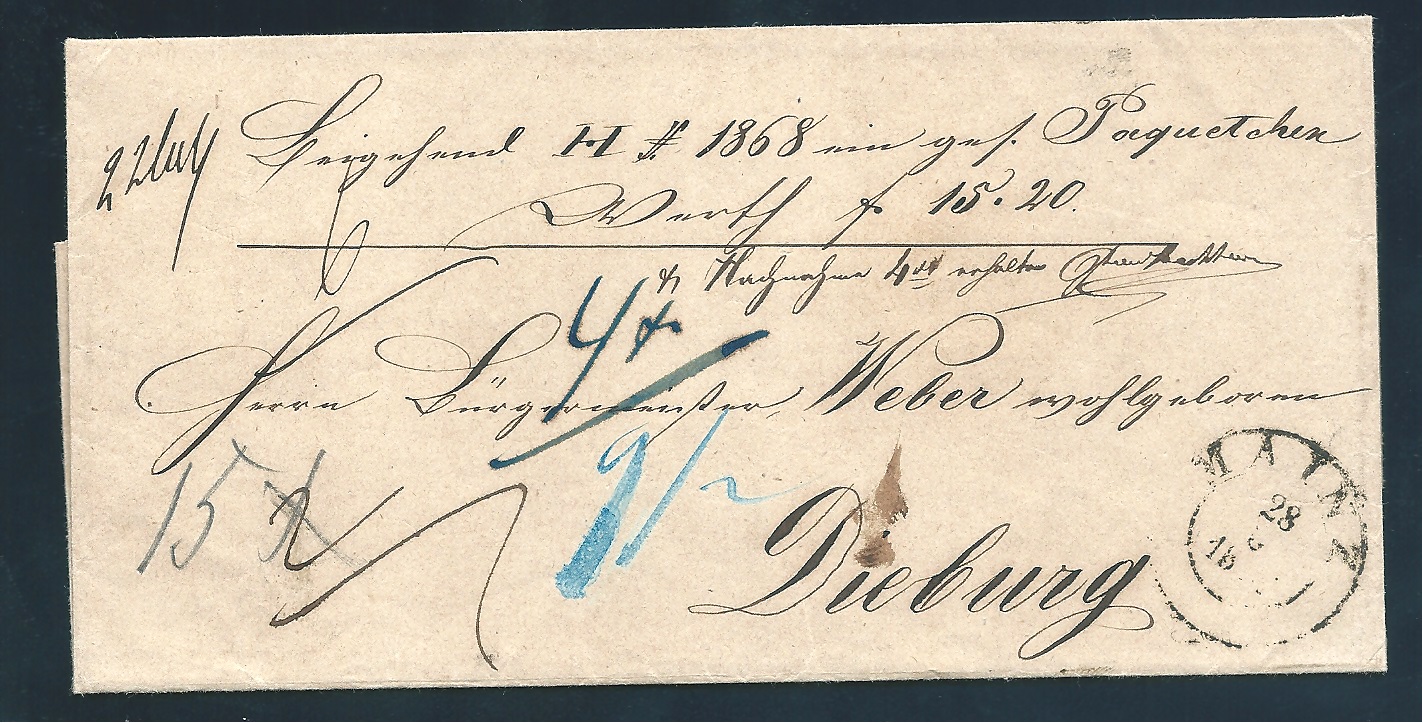 Beigehend H # 1868 ein ges. Paquetchen
Werth f 15.20.
Nachnahme 4 xr erhalten
4x
Herrn Bürgermeister Weber wohlgeboren
15
9/2
Dieburg
MAINZ
28